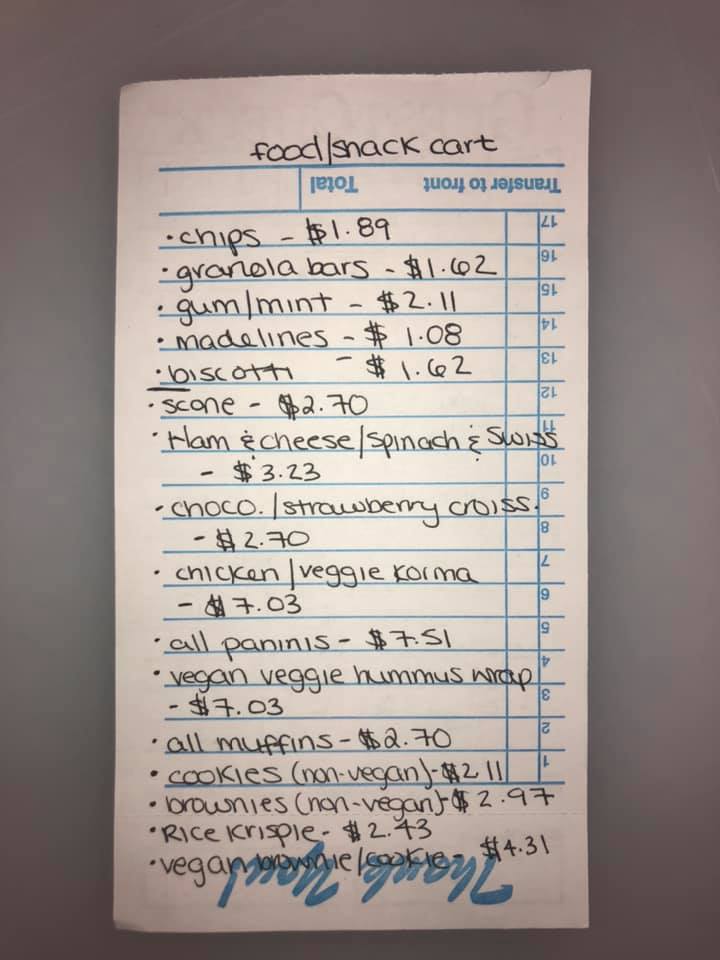 food/snack cart
Transfer to front Total
17
• chips - $1.89
16
• granola bars - $1.62
15
• gum/mint - $2.11
14
• madelines - $ 1.08
13
• biscotti - $ 1.62
12
• scone - $2.70
11
• Ham & cheese/spinach & Swiss
10
- $3.23
9
• choco./strawberry croiss.
8
- $2.70
7
• chicken/veggie korma
6
- $7.03
5
• all paninis - $7.51
4
• vegan veggie hummus wrap
3
- $7.03
2
• all muffins - $2.70
1
• cookies (non-vegan) - $2.11
• brownies (non-vegan) - $2.97
• Rice Krispie - $2.43
• vegan brownie/cookie - $4.31
Thank You!